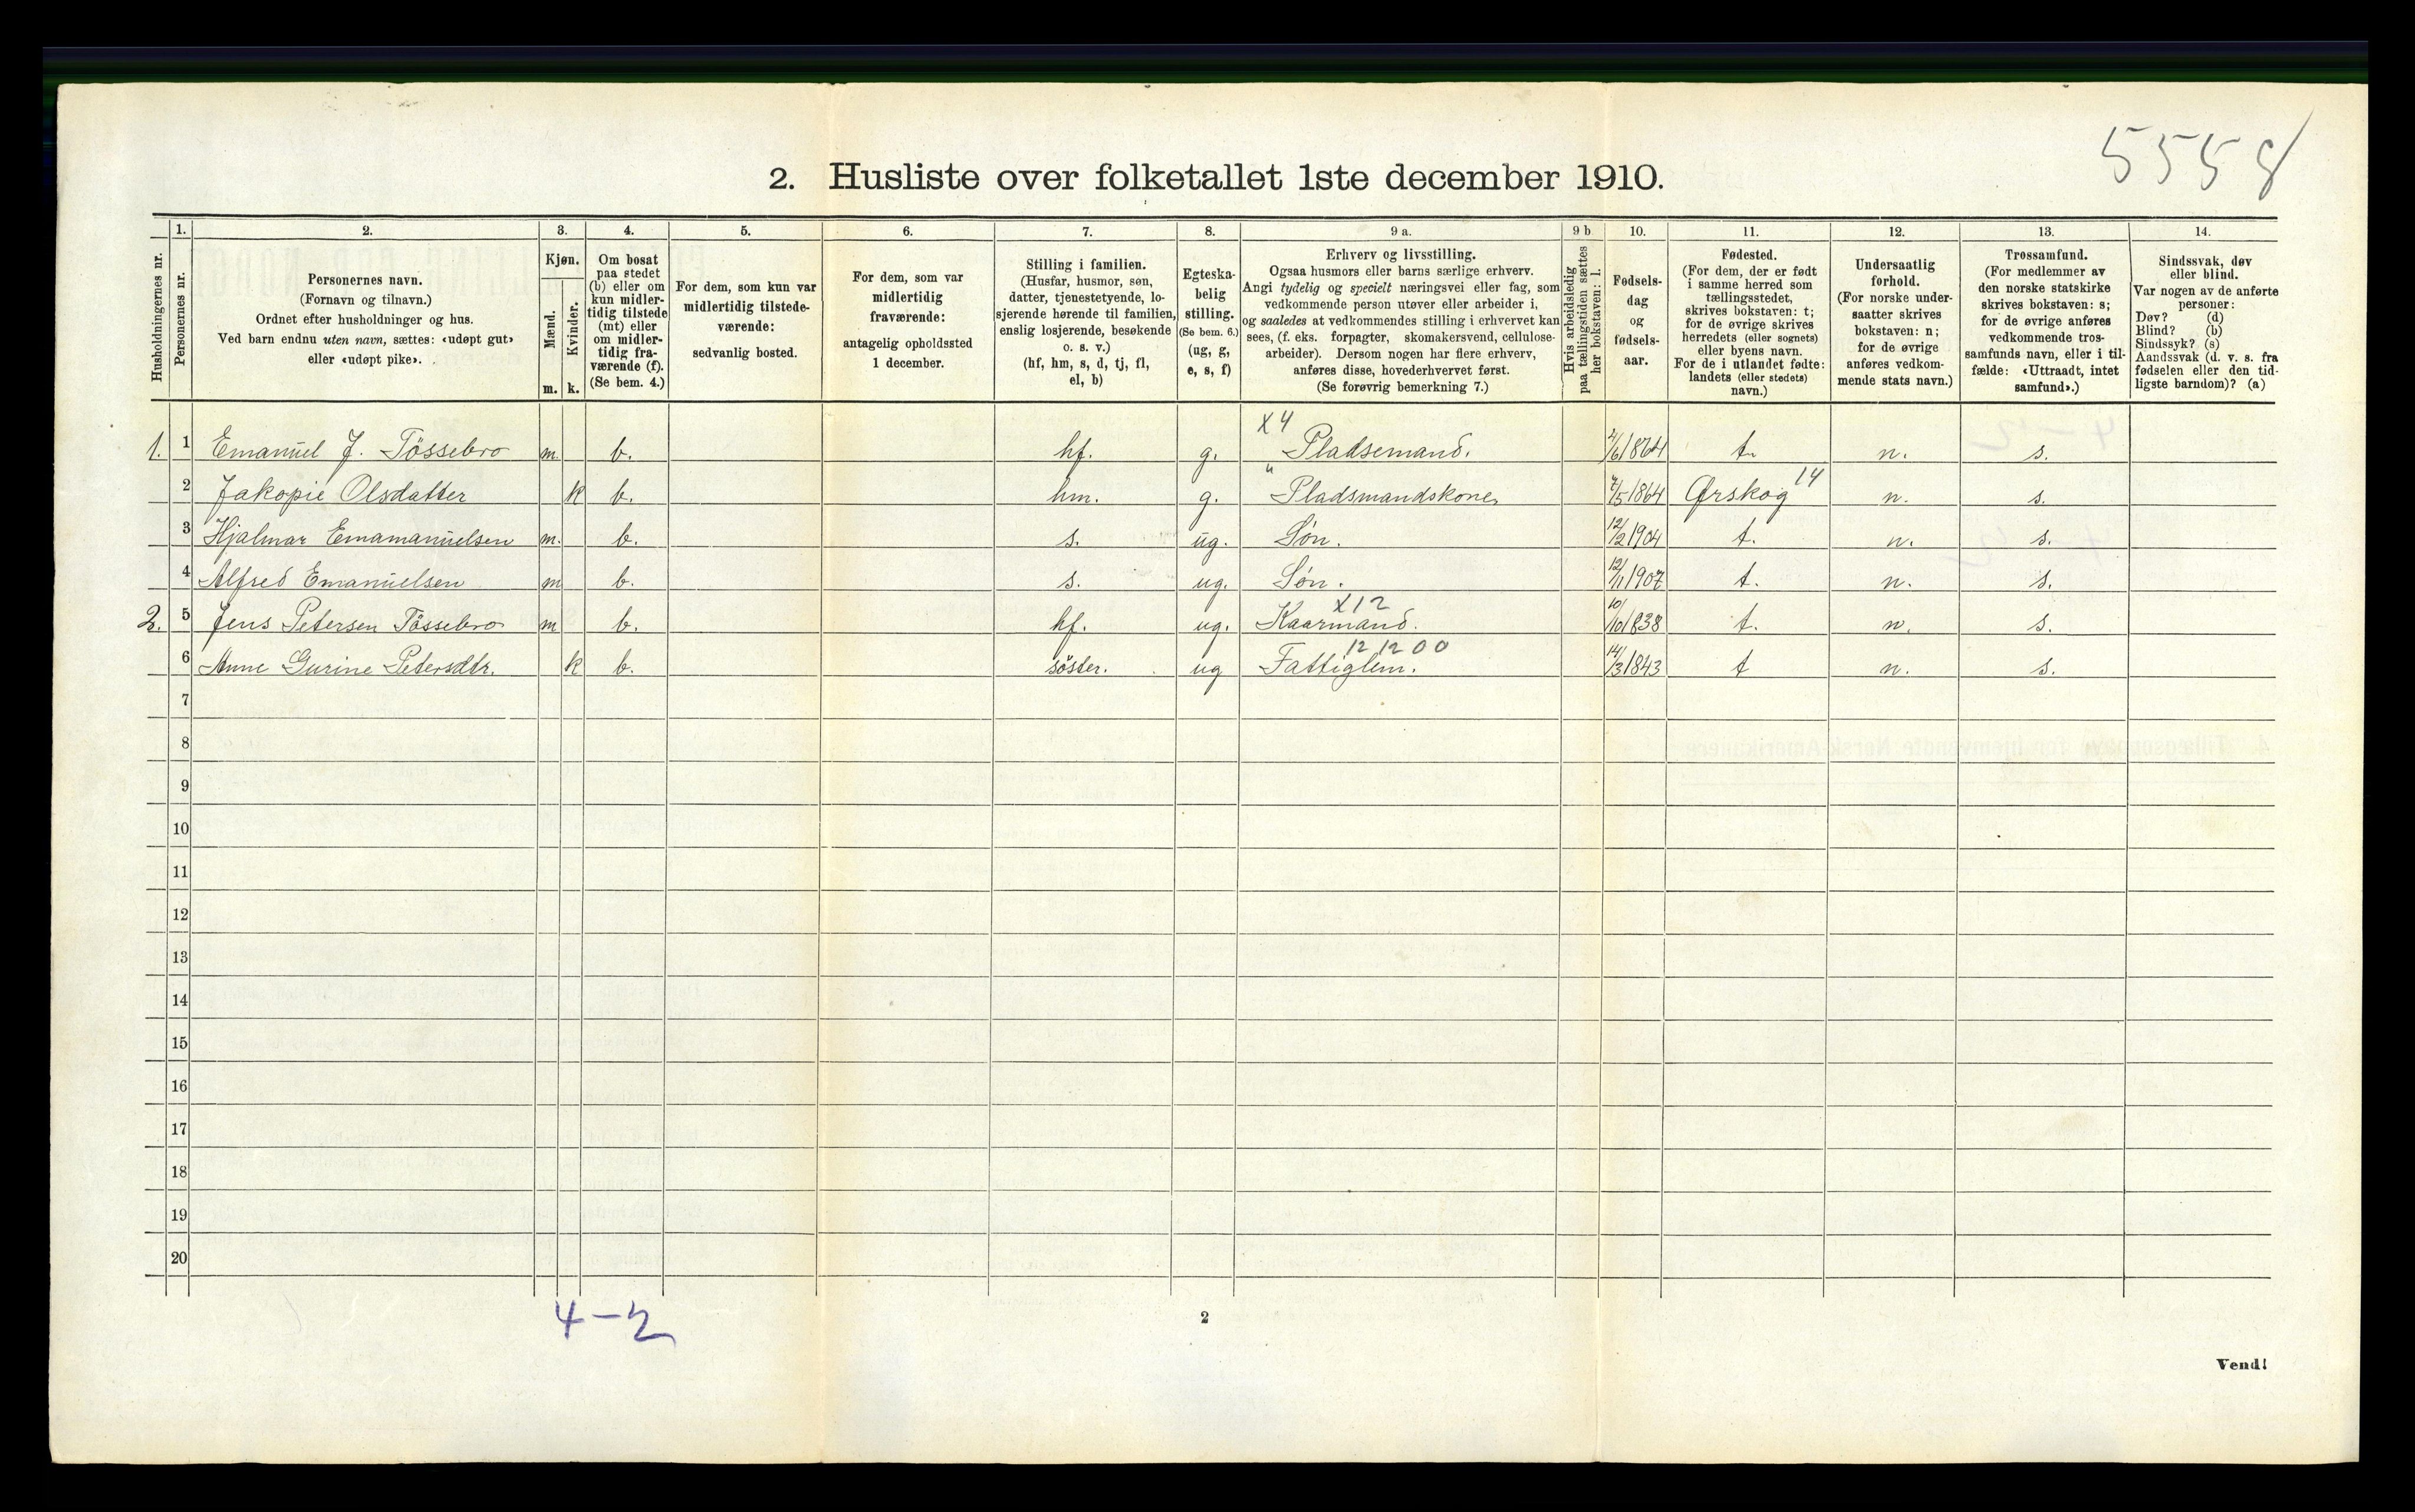 5558
2. Husliste over folketallet 1ste december 1910.
Husholdningernes nr.
1.
Personernes nr.
2.
Personernes navn.
(Fornavn og tilnavn.)
Ordnet efter husholdninger og hus.
Ved barn endnu uten navn, sættes: «udøpt gut»
eller «udøpt pike».
3.
Kjøn.
Mænd.
Kvinder.
m. k.
4.
Om bosat
paa stedet
(b) eller om
kun midler-
tidig tilstede
(mt) eller
om midler-
tidig fra-
værende (f).
(Se bem. 4.)
5.
For dem, som kun var
midlertidig tilstede-
værende:
sedvanlig bosted.
6.
For dem, som var
midlertidig
fraværende:
antagelig opholdssted
1 december.
7.
Stilling i familien.
(Husfar, husmor, søn,
datter, tjenestetyende, lo-
sjerende hørende til familien,
enslig losjerende, besøkende
o. s. v.)
(hf, hm, s, d, tj, fl,
el, b)
8.
Egteska-
belig
stilling.
(Se bem. 6.)
(ug, g,
e, s, f)
9 a.
Erhverv og livsstilling.
Ogsaa husmors eller barns særlige erhverv.
Angi tydelig og specielt næringsvei eller fag, som
vedkommende person utøver eller arbeider i,
og saaledes at vedkommendes stilling i erhvervet kan
sees, (f. eks. forpagter, skomakersvend, cellulose-
arbeider). Dersom nogen har flere erhverv,
anføres disse, hovederhvervet først.
(Se forøvrig bemerkning 7.)
9 b
Hvis arbeidsledig
paa tællingstiden sættes
her bokstaven: l.
10.
Fødsels-
dag
og
fødsels-
aar.
11.
Fødested.
(For dem, der er født
i samme herred som
tællingsstedet,
skrives bokstaven: t;
for de øvrige skrives
herredets (eller sognets)
eller byens navn.
For de i utlandet fødte:
landets (eller stedets)
navn.)
12.
Undersaatlig
forhold.
(For norske under-
saatter skrives
bokstaven: n;
for de øvrige
anføres vedkom-
mende stats navn.)
13.
Trossamfund.
(For medlemmer av
den norske statskirke
skrives bokstaven: s;
for de øvrige anføres
vedkommende tros-
samfunds navn, eller i til-
fælde: «Uttraadt, intet
samfund».)
14.
Sindssvak, døv
eller blind.
Var nogen av de anførte
personer:
Døv? (d)
Blind? (b)
Sindssyk? (s)
Aandssvak (d. v. s. fra
fødselen eller den tid-
ligste barndom)? (a)
x4
1. 1 Emanuel J. Tössebro m. b. hf. g. Pladsemand. 2/6 1864 t. n. s.
" 14
2 Jakopie Olsdatter k b. hm. g. Pladsmandskone 7/5 1864 Ørskog n. s.
3 Hjalmar Emamanuelsen m. b. s. ug. Søn. 12/2 1904 t. n. s.
4 Alfred Emanuelsen m b. s. ug. Søn. 12/11 1907 t. n. s.
x12
2. 5 Jens Petersen Tössebro m b. hf. ug. Kaarmand. 10/10 1838 t. n. s.
12 1200
6 Anne Gurine Petersdtr. k b. söster. ug Fattiglem. 14/3 1843 t n. s.
7
8
9
10
11
12
13
14
15
16
17
18
19
20
4-2
2
Vend!